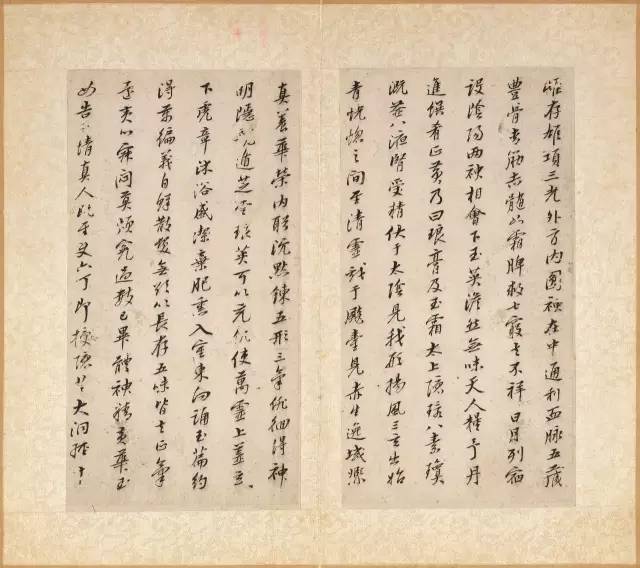 雌存雄項三光外方內圓神在中通利血脈五藏
豐骨青筋赤髓如霜脾救七竅去不祥日月列宿
設陰陽兩神相會下玉英澹然無味天人糧子丹
進饌肴正黃乃曰琅膏及玉霜太上隱環八素瓊
溉益八液腎受精伏于太陰見我形揚風三玄出始
青恍惚之間至清靈戲于飈臺見赤生逸域熙
真養華榮內盼沉默鍊五形三氣徘徊得神
明隱龍遁芝雲琅英可以充飢使萬靈上蓋玄玄
下虎章沐浴盛潔棄肥熏入室東向誦玉篇約
得萬徧義自鮮散髮無欲以長存五味皆去正氣
還夷心寂悶莫煩冤過數已畢體神精黃華玉
女告子情真人既至使六丁即授隱芝大洞經十